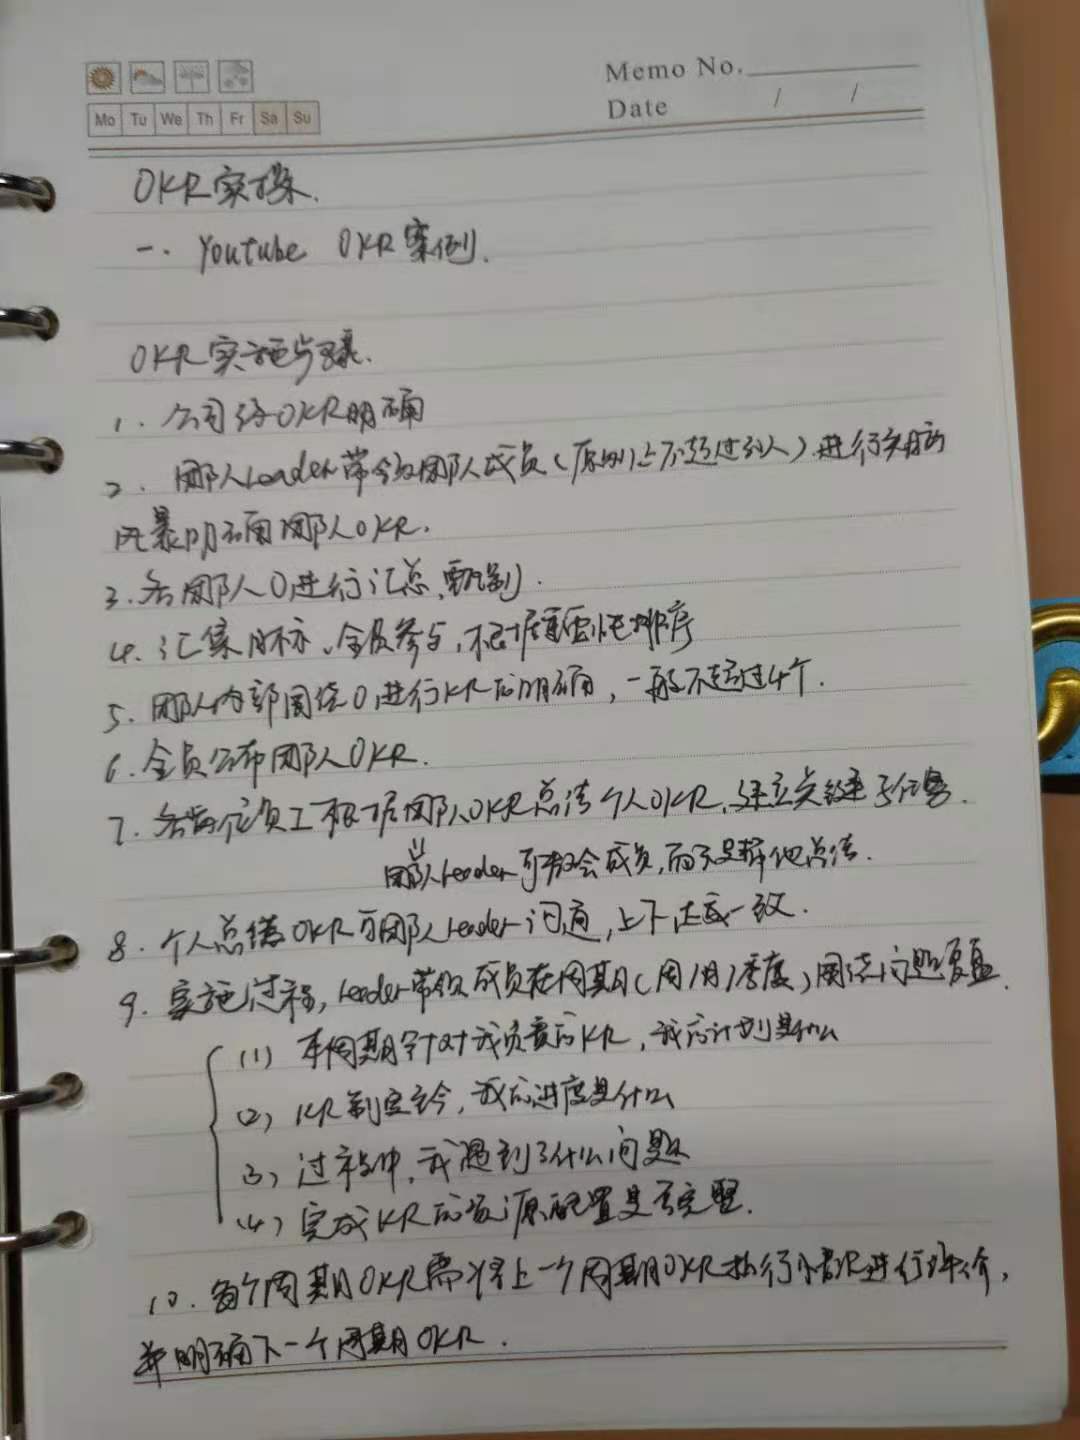 Memo No.
Mo Tu We Th Fr Sa Su
Date / /
OKR实操.
一. Youtube OKR案例.
OKR实施步骤.
1. 公司级OKR明确
2. 团队Leader带领团队成员(原则上不超过 人)进行头脑
风暴明确团队OKR.
3. 各团队O进行汇总,甄别.
4. 汇集目标、全员参与,根据重要性排序
5. 团队内部围绕O进行KR的明确,一般不超过4个.
6. 全员公布团队OKR.
7. 每位员工根据团队OKR总结个人OKR,建立关键 任务.
团队leader可教会成员,而不是替他总结.
8. 个人总结OKR与团队leader沟通,上下达成一致.
9. 实施过程,leader带领成员在周期(周/月/季度)围绕问题复盘.
(1) 本周期针对我负责的KR,我的计划是什么
(2) KR制定至今,我的进度是什么
(3) 过程中,我遇到了什么问题
(4) 完成KR的资源配置是否完整.
10. 每个周期OKR需将上一个周期OKR执行情况进行评价,
并明确下一个周期OKR.